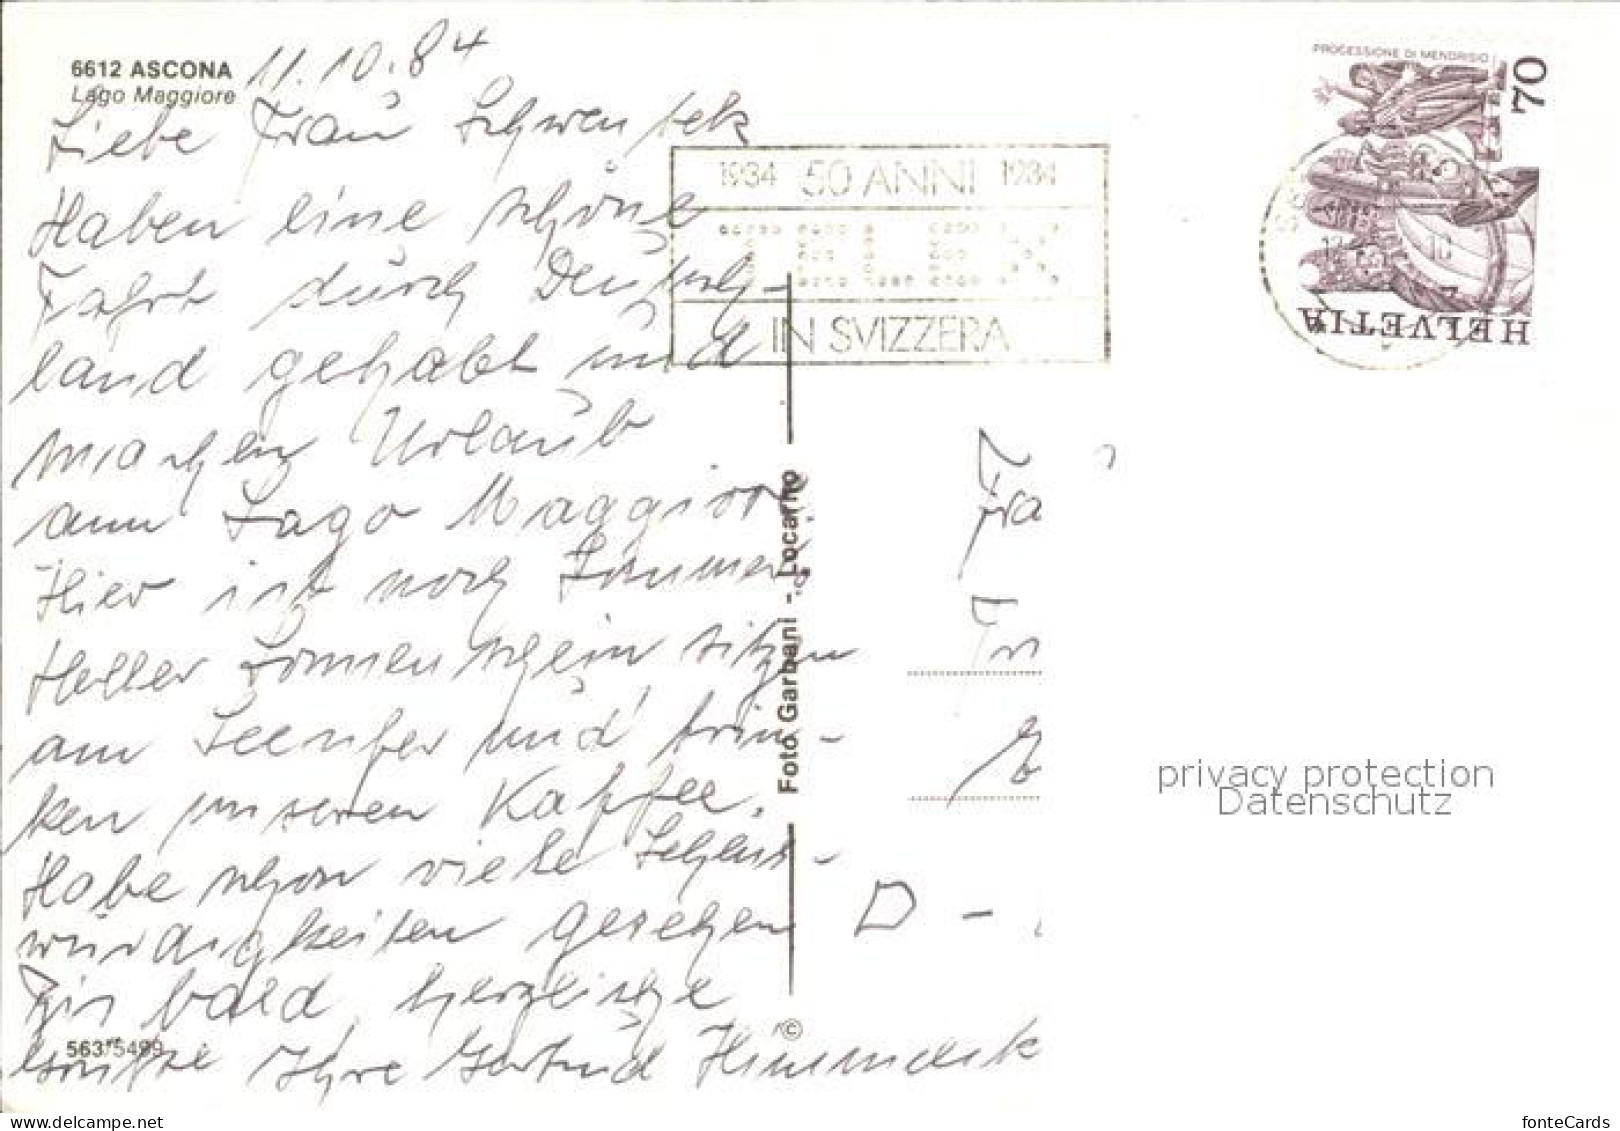 6612 ASCONA
Lago Maggiore
11.10.84
Liebe Frau
Haben eine schöne
Fahrt durch Deutsch-
land gehabt und
machen Urlaub
am Lago Maggiore
Hier ist noch Sommer.
Heller Sonnenschein sitzen
am Seeufer und trin-
ken unseren Kaffee.
Habe schon viele Sehens-
würdigkeiten gesehen
Bis bald herzliche
Grüße Ihre Gertrud
563/5499
1934 50 ANNI 1984
TELEX
IN SVIZZERA
PROCESSIONE DI MENDRISIO
70
HELVETIA
Foto Garbani - Locarno
©
D -
privacy protection
Datenschutz
www.ansichtskartenversand.com
fonteCards